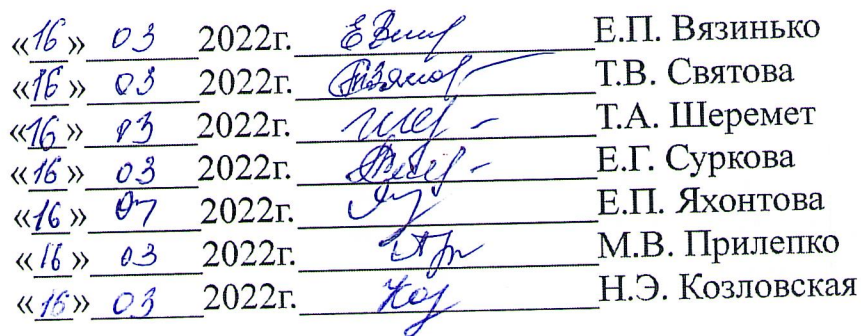 «16» 03 2022г. Е.П. Вязинько
«16» 03 2022г. Т.В. Святова
«16» 03 2022г. Т.А. Шеремет
«16» 03 2022г. Е.Г. Суркова
«16» 2022г. Е.П. Яхонтова
«16» 03 2022г. М.В. Прилепко
«16» 03 2022г. Н.Э. Козловская